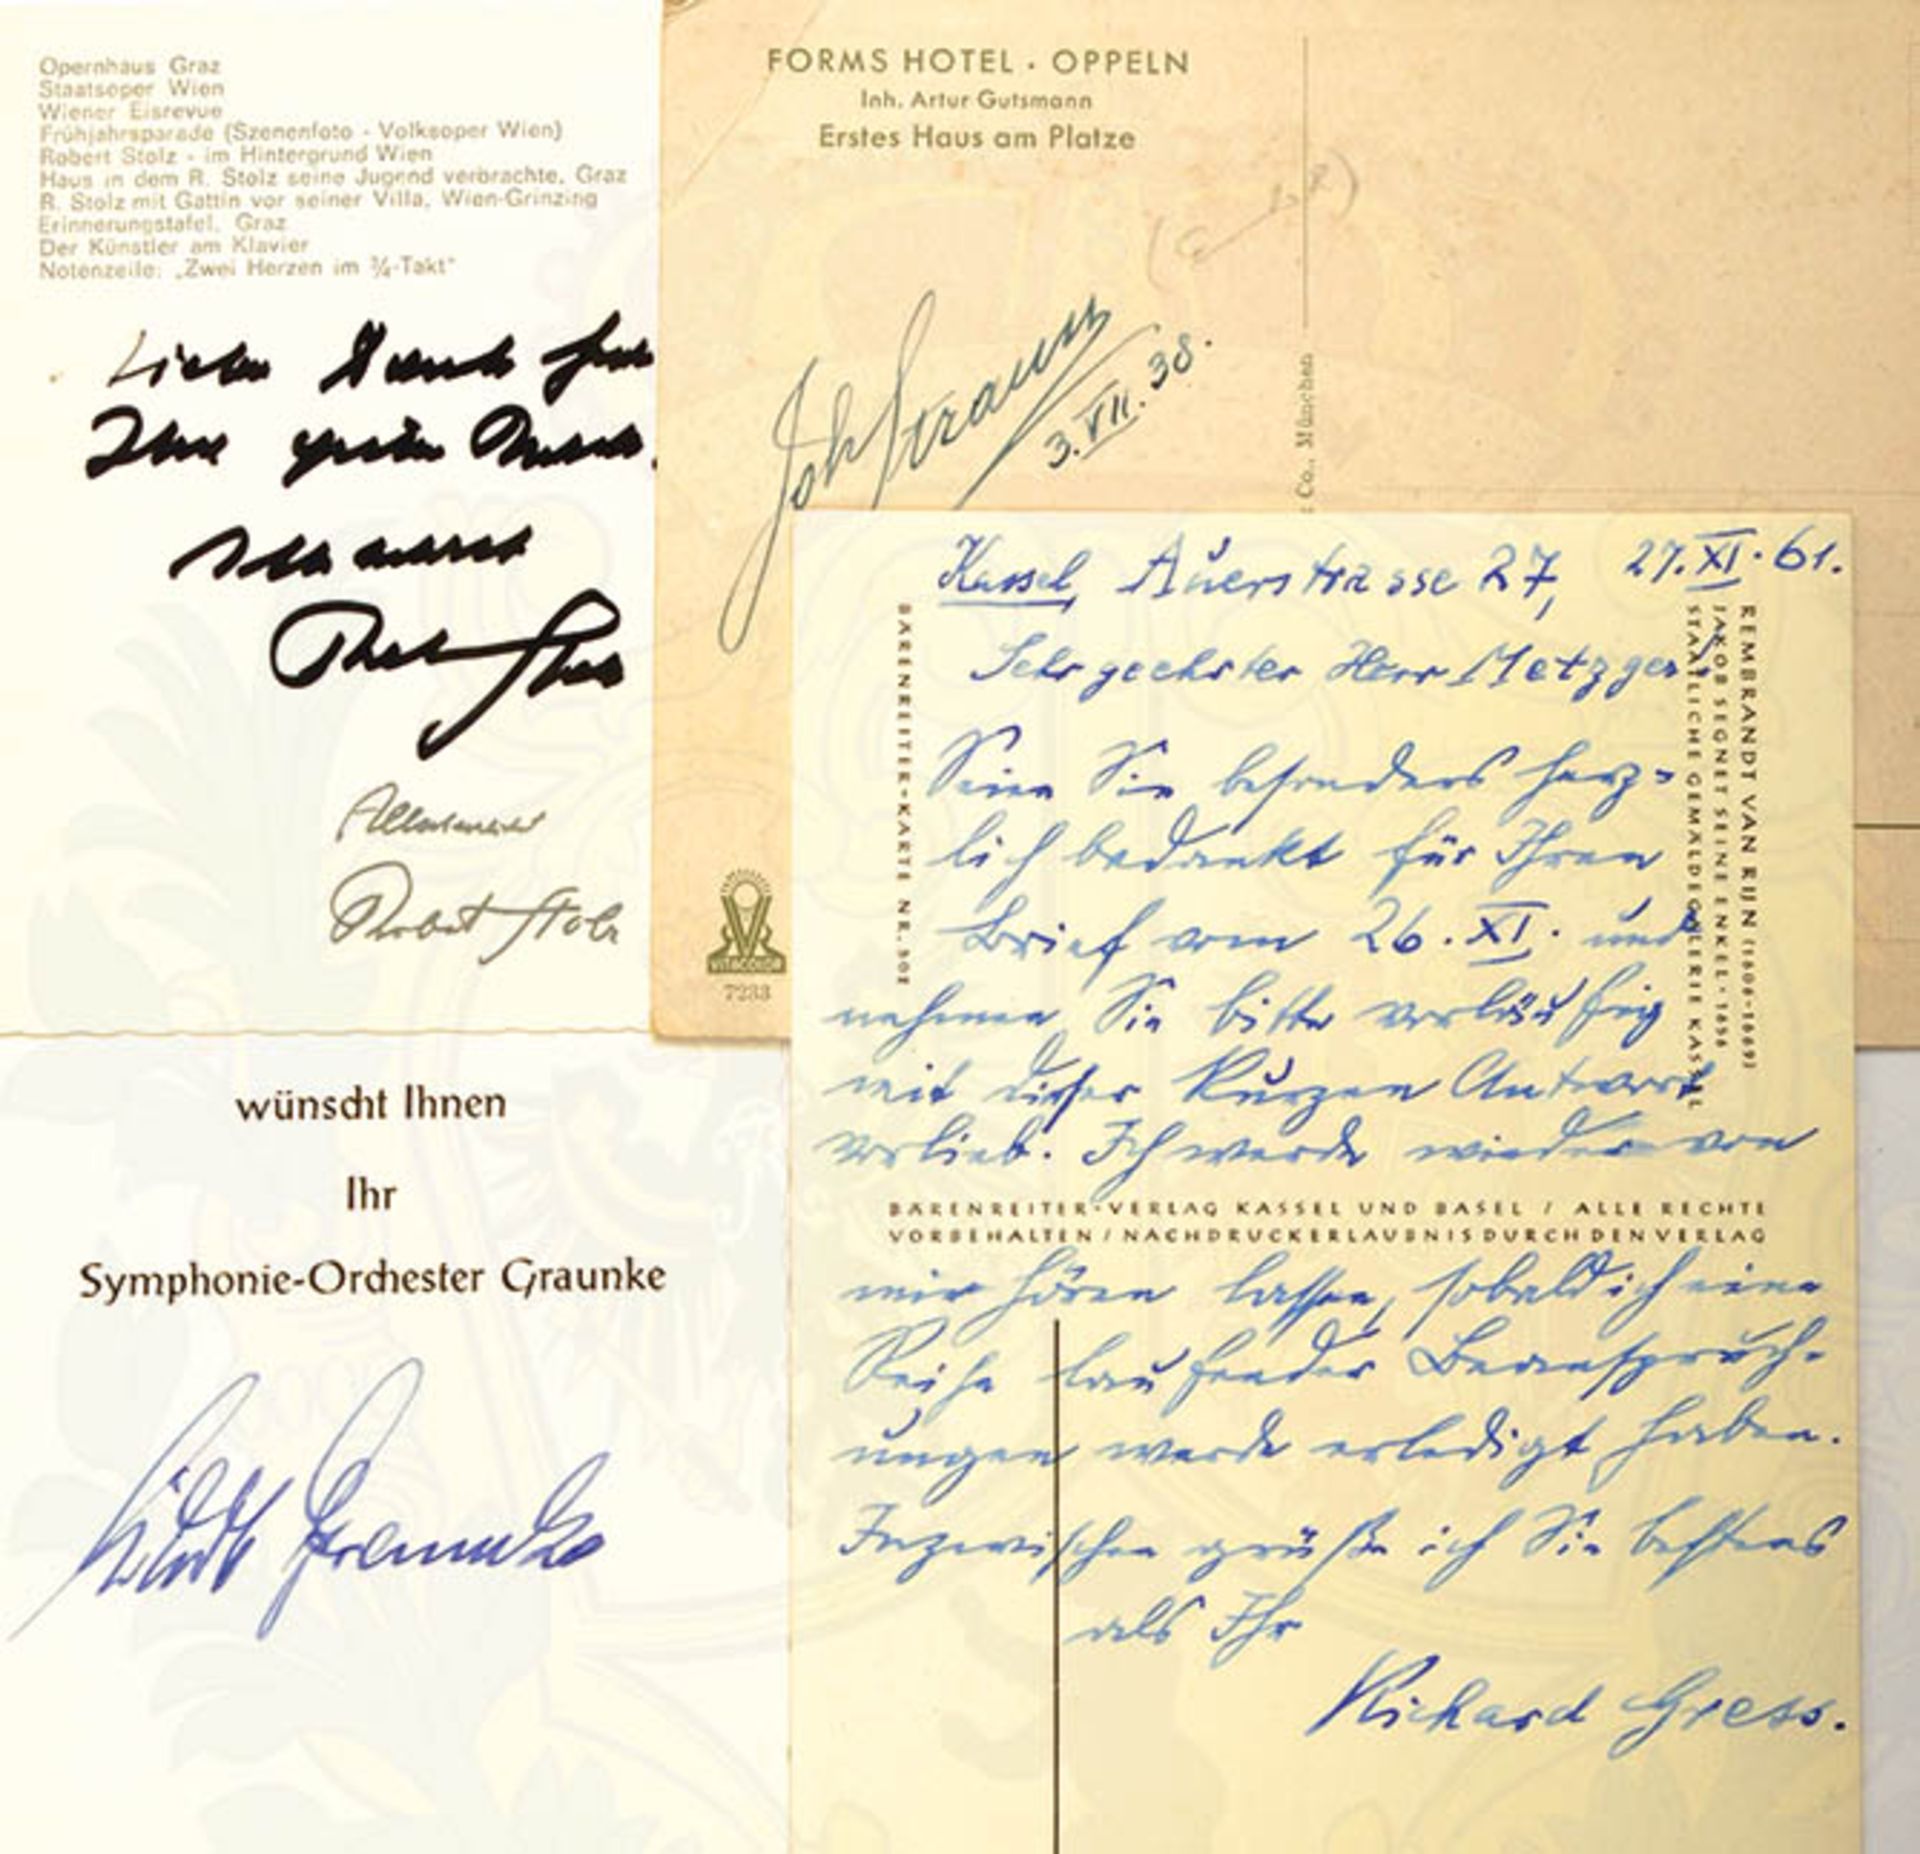 Opernhaus Graz
Staatsoper Wien
Wiener Eisrevue
Frühjahrsparade (Szenenfoto - Volksoper Wien)
Robert Stolz - im Hintergrund Wien
Haus in dem R. Stolz seine Jugend verbrachte, Graz
R. Stolz mit Gattin vor seiner Villa, Wien-Grinzing
Erinnerungstafel, Graz
Der Künstler am Klavier
Notenzeile: „Zwei Herzen im ¾-Takt"
Robert Stolz
Robert Stolz
FORMS HOTEL · OPPELN
Inh. Artur Gutsmann
Erstes Haus am Platze
Joh Strauss
3.VII.38.
Co., München
VITACOLOR
7233
wünscht Ihnen
Ihr
Symphonie-Orchester Graunke
Graunke
Kassel, Auerstrasse 27, 27.XI.61.
Sehr geehrter Herr Metzger!
Seien Sie besonders herz-
lich bedankt für Ihren
Brief vom 26.XI. und
nehmen Sie bitte vorläufig
mit dieser kurzen Antwort
vorlieb. Ich werde wieder von
mir hören lassen, sobald ich eine
Reihe laufender Beanspruch-
ungen werde erledigt haben.
Inzwischen grüße ich Sie bestens
als Ihr
Richard Gress.
BÄRENREITER-KARTE NR. 501
REMBRANDT VAN RIJN (1606-1669)
JAKOB SEGNET SEINE ENKEL · 1656
STAATLICHE GEMÄLDEGALERIE KASSEL
BÄRENREITER-VERLAG KASSEL UND BASEL / ALLE RECHTE
VORBEHALTEN / NACHDRUCKERLAUBNIS DURCH DEN VERLAG